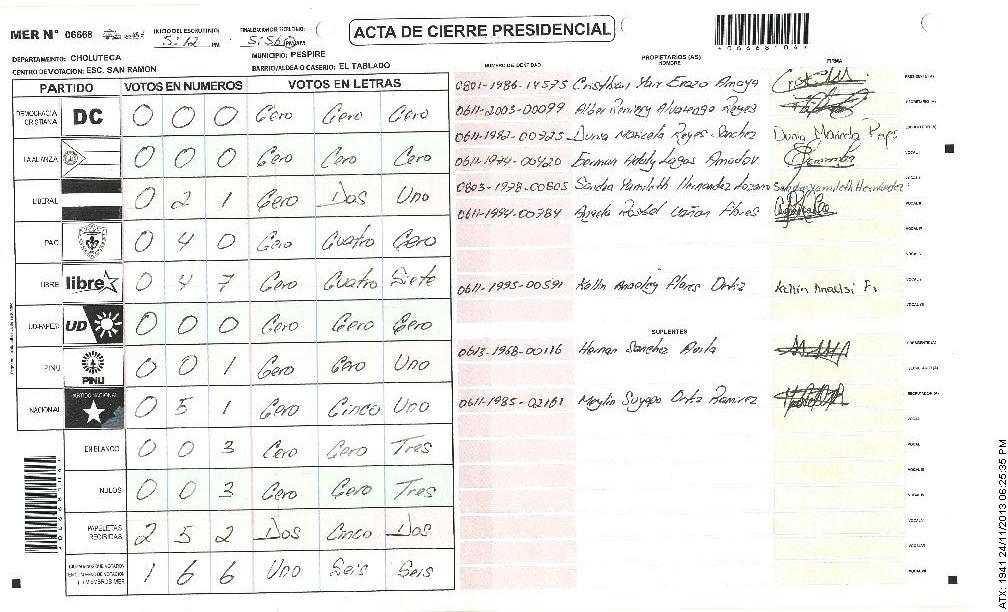 MER N° 06668
INICIO DEL ESCRUTINIO: 5:12 PM
FINALIZACION DE ESCRUTINIO: 5:56 PM
ACTA DE CIERRE PRESIDENCIAL
DEPARTAMENTO: CHOLUTECA
MUNICIPIO: PESPIRE
CENTRO DE VOTACION: ESC. SAN RAMON
BARRIO/ALDEA O CASERIO: EL TABLADO
PARTIDO VOTOS EN NUMEROS VOTOS EN LETRAS
DEMOCRACIA CRISTIANA DC 0 0 0 Cero Cero Cero
LA ALIANZA 0 0 0 Cero Cero Cero
LIBERAL 0 2 1 Cero Dos Uno
PAC 0 4 0 Cero Cuatro Cero
LIBRE libre 0 4 7 Cero Cuatro Siete
UD-FAPER UD 0 0 0 Cero Cero Cero
PINU PINU 0 0 1 Cero Cero Uno
NACIONAL PARTIDO NACIONAL 0 5 1 Cero Cinco Uno
EN BLANCO 0 0 3 Cero Cero Tres
NULOS 0 0 3 Cero Cero Tres
PAPELETAS RECIBIDAS 2 5 2 Dos Cinco Dos
MIEMBROS MER 1 6 6 Uno Seis Seis
NUMERO DE IDENTIDAD PROPIETARIOS (AS) NOMBRE FIRMA
0801-1986-14575 Amaya PRESIDENTE (A)
0611-2003-00099 Alvarenga Reyes SECRETARIO (A)
0611-1992-00725 Dunia Maricela Reyes Sanchez Dunia Maricela Reyes
0611-1974-00420 German Lagos Amador VOCAL I
0803-1978-00805 Sandra Yamileth Hernandez Lozano Sandra Yamileth Hernández
0611-1994-00784 Flores VOCAL III
VOCAL IV
0611-1995-00591 Flores Ortiz
SUPLENTES
0615-1968-00116 Hernan Sanchez Avila PRESIDENTE (A)
SECRETARIO (A)
0611-1985-02161 Meylin Suyapa Ortiz Ramirez ESCRUTADOR (A)
VOCAL
VOCAL
ATX: 1941 24/11/2013 06:25:35 PM